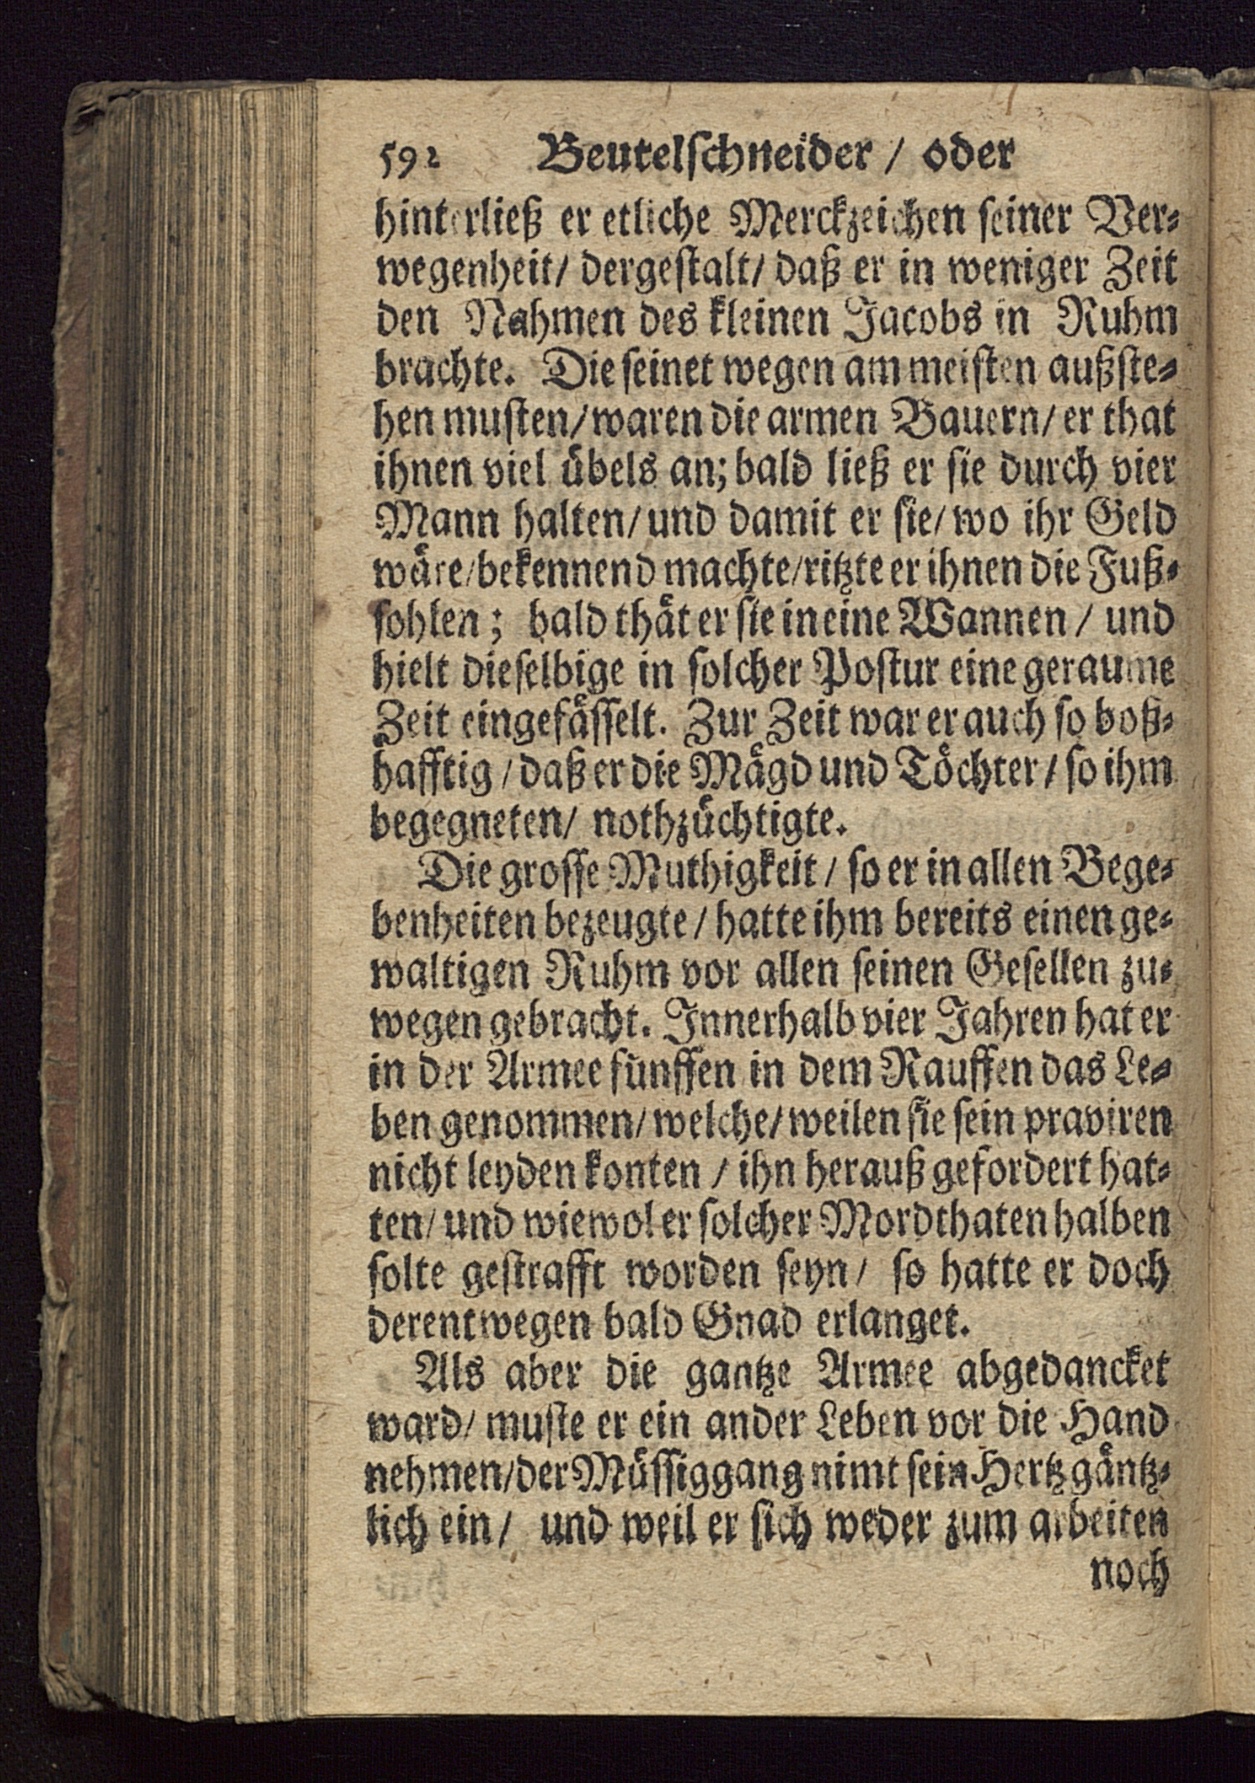 592 Beutelschneider / oder
hinterließ er etliche Merckzeichen seiner Ver-
wegenheit/ dergestalt/ daß er in weniger Zeit
den Nahmen des kleinen Jacobs in Ruhm
brachte. Die seinet wegen am meisten außste-
hen musten/ waren die armen Bauern/ er that
ihnen viel übels an; bald ließ er sie durch vier
Mann halten/ und damit er sie/ wo ihr Geld
wäre/ bekennend machte/ ritzte er ihnen die Fuß-
sohlen; bald thät er sie in eine Wannen / und
hielt dieselbige in solcher Postur eine geraume
Zeit eingefässelt. Zur Zeit war er auch so boß-
hafftig / daß er die Mägd und Töchter / so ihm
begegneten/ nothzüchtigte.
Die grosse Muthigkeit / so er in allen Bege-
benheiten bezeugte / hatte ihm bereits einen ge-
waltigen Ruhm vor allen seinen Gesellen zu-
wegen gebracht. Innerhalb vier Jahren hat er
in der Armee fünffen in dem Rauffen das Le-
ben genommen/ welche/ weilen sie sein praviren
nicht leyden konten / ihn herauß gefordert hat-
ten/ und wiewol er solcher Mordthaten halben
solte gestrafft worden seyn/ so hatte er doch
derentwegen bald Gnad erlanget.
Als aber die gantze Armee abgedancket
ward/ muste er ein ander Leben vor die Hand
nehmen/ der Müssiggang nimt sein Hertz gäntz-
lich ein/ und weil er sich weder zum arbeiten
noch